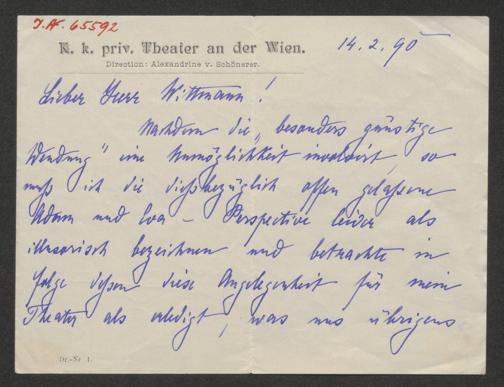 J.N. 65592
K. k. priv. Theater an der Wien.
Direction: Alexandrine v. Schönerer.
14.2.90
Lieber Herr Wittmann!
Nachdem die „besonders günstige
Wendung" eine Unmöglichkeit involvirt, so
muß ich die dießbezüglich offen gelassene
Adam und Eva – Perspective leider als
illusorisch bezeichnen und betrachte in
folge dessen diese Angelegenheit für mein
Theater als erledigt, was uns übrigens
Dr.-Nr. 1.